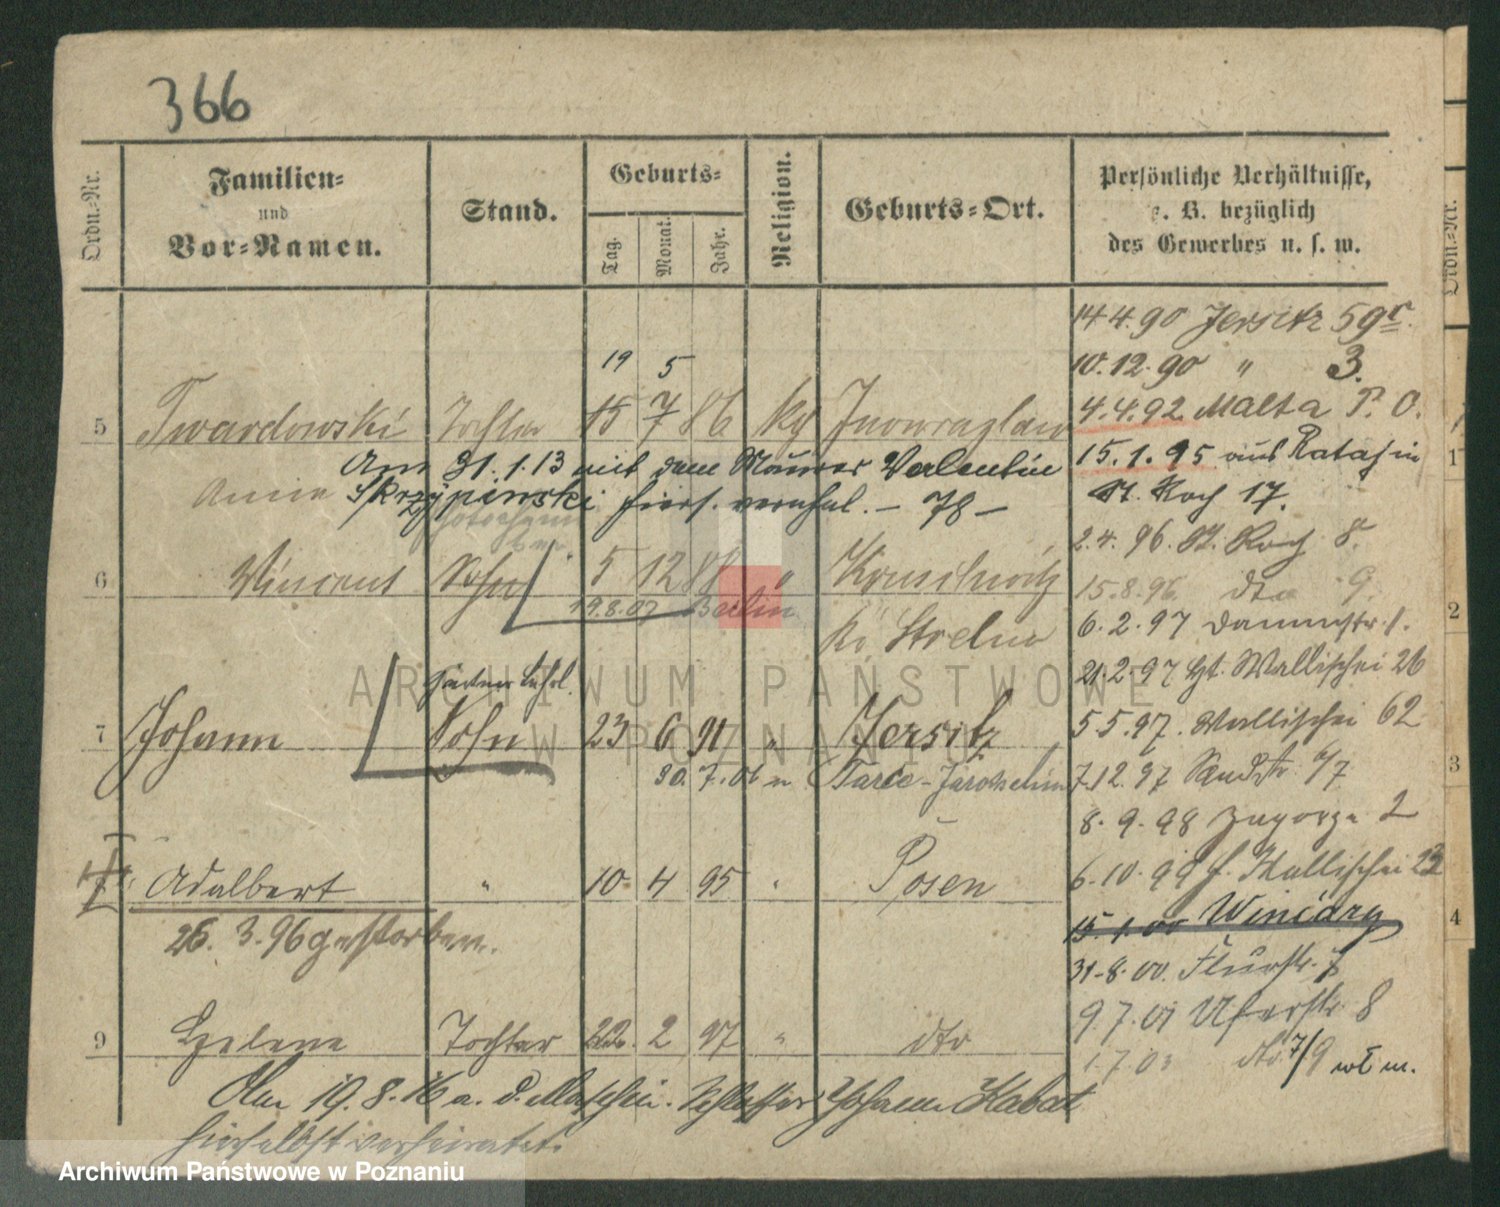 366
Ordn.-Nr.
Familien-
und
Vor-Namen.
Stand.
Geburts-
Tag.
Monat.
Jahr.
Religion.
Geburts-Ort.
Persönliche Verhältnisse,
z. B. bezüglich
des Gewerbes u. s. w.
Ordn.-Nr.
14.4.90 Jersitz 59
19 5
10.12.90 " 3.
5 Twardowski Tochter 15 7 86 Inowrazlaw
4.4.92 Malta P. O.
Am 31.1.13 mit dem Maurer Valentin
15.1.95 aus Rataj in
1
Anna Skrzypinski hiers. verehel. – 78 –
St. Roch 17.
2.4.96. St. Roch 8.
6 Vincent Sohn 5 12 88 " Kruschwitz
15.8.96. dto 9.
19.8.07 Berlin
Kr. Strelno
6.2.97 Dammstr. 1.
2
21.2.97 Wallischei 26
Gärtner Lehrl.
7 Johann Sohn 23 6 91 " Jersitz
5.5.97. Wallischei 62
30.7.06 n Tarce-Jarotschin
7.12.97 Sandstr.
3
8.9.98 Zagorze 2
Adalbert " 10 4 95 " Posen
6.10.99 Wallischei 23
26.3.96 gestorben.
15.1.00 Winiary
4
31.8.00. Flurstr. 7
9 Helene Tochter 22. 2 97 " dto
9.7.01 Uferstr. 8
1.7.03 dto 7/9
Am 19.8.16 a. d. Maschin. Schlosser Johann Kabat
hierselbst verheiratet.
ARCHIWUM PAŃSTWOWE
W POZNANIU
Archiwum Państwowe w Poznaniu